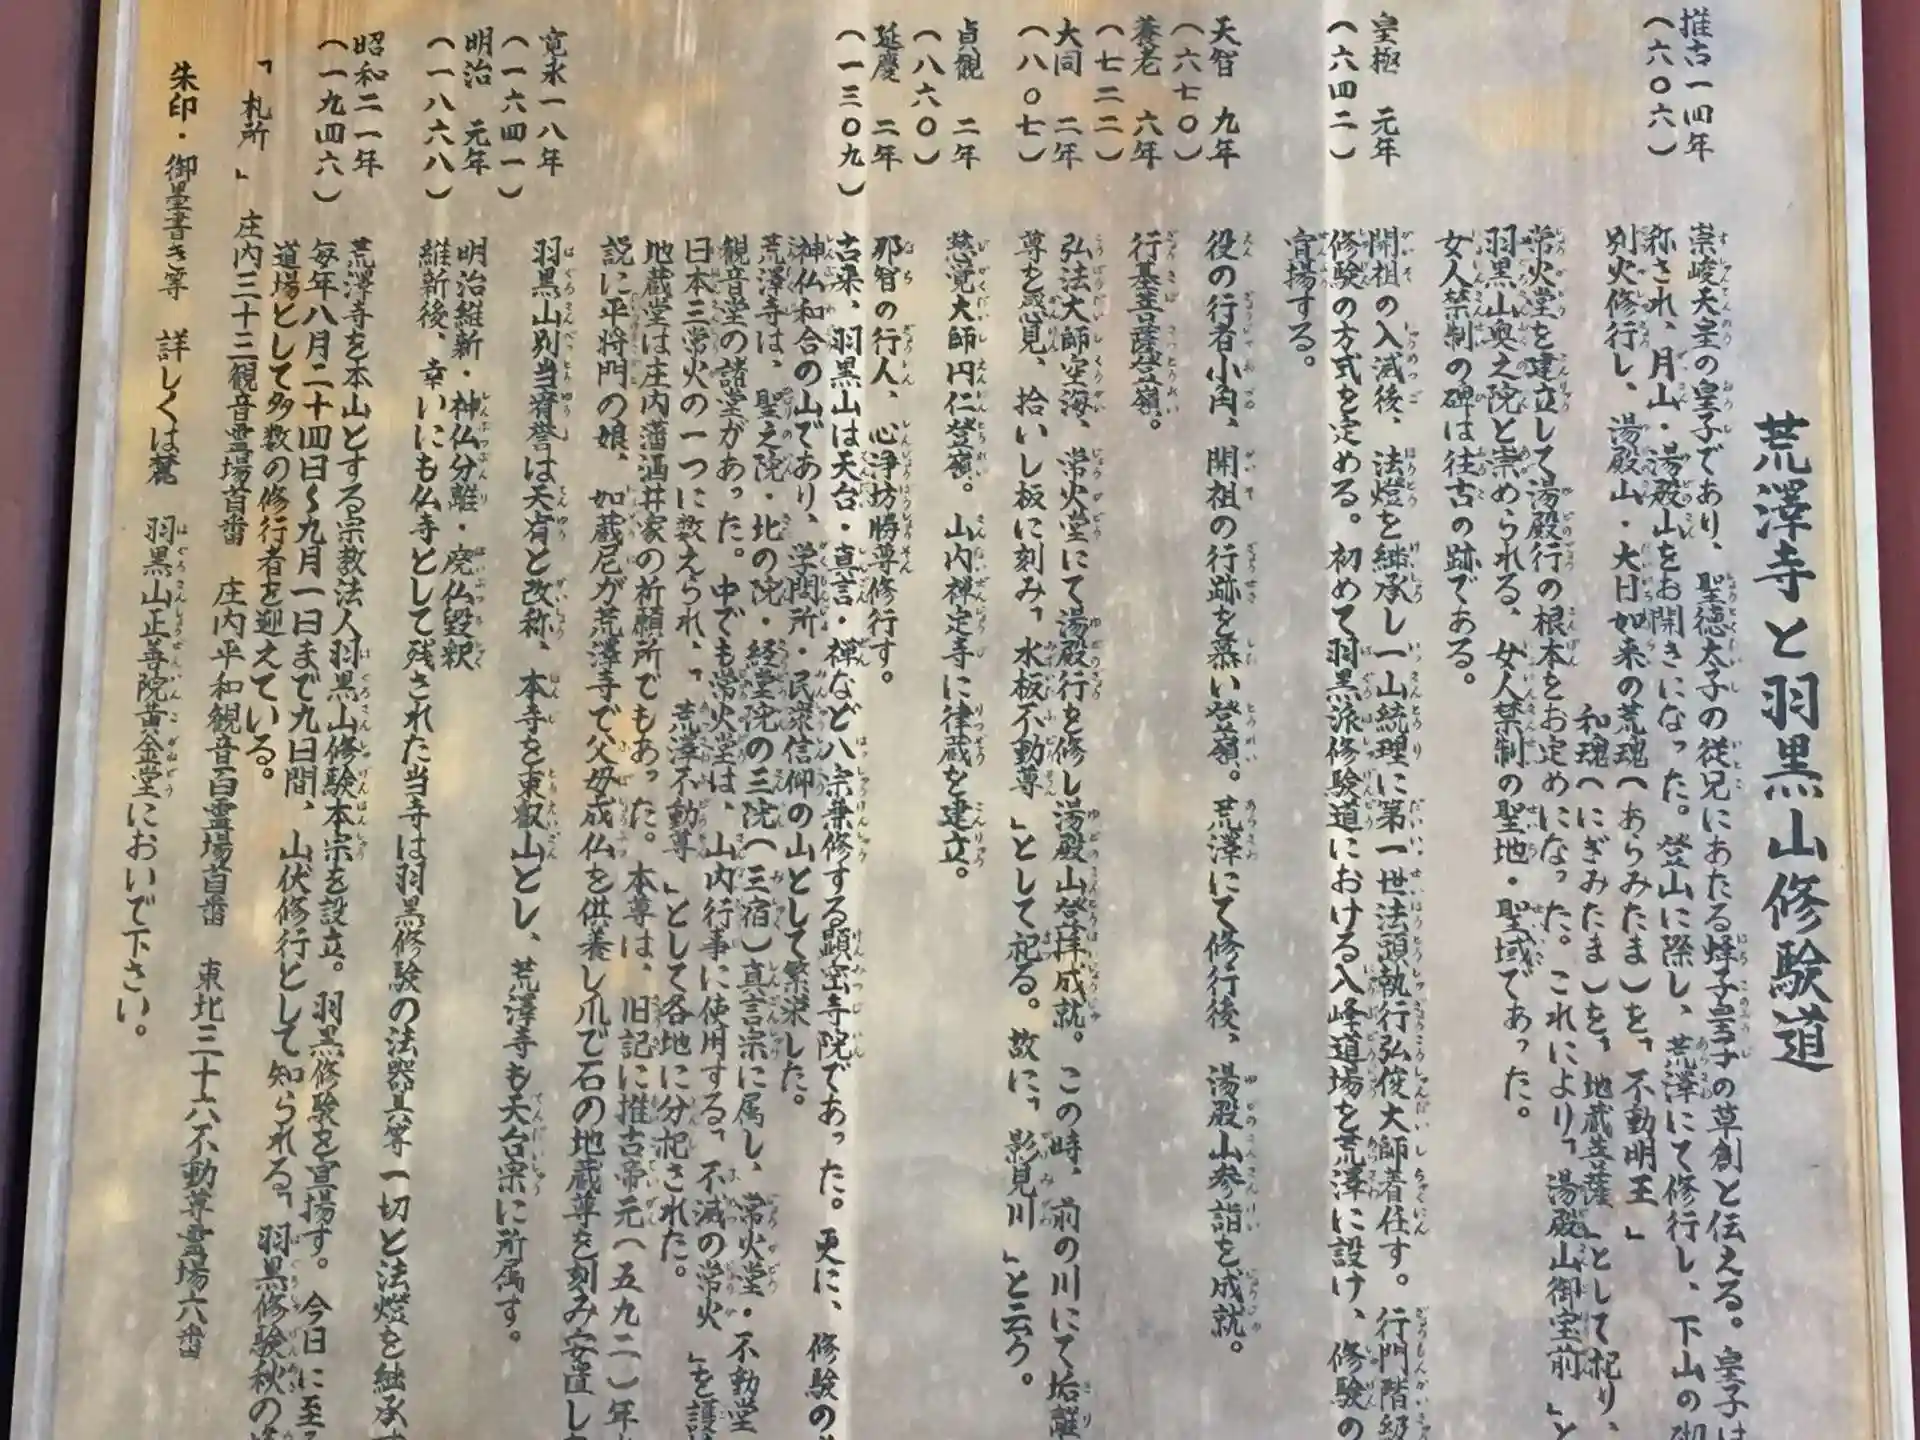 荒澤寺と羽黒山修験道
推古一四年
（六〇六）
崇峻天皇の皇子であり、聖徳太子の従兄にあたる蜂子皇子の草創と伝える。皇子は
称され、月山・湯殿山をお開きになった。登山に際し、荒澤にて修行し、下山の御
別火修行し、湯殿山・大日如来の荒魂（あらみたま）を「不動明王」
和魂（にぎみたま）を「地蔵菩薩」として祀り、
常火堂を建立して湯殿行の根本をお定めになった。これにより「湯殿山御宝前」と
羽黒山奥之院と崇められる、女人禁制の聖地・聖域であった。
女人禁制の碑は往古の跡である。
皇極 元年
（六四二）
開祖の入滅後、法燈を継承し一山統理に第一世法頭執行弘俊大師着任す。行門階級
修験の方式を定める。初めて羽黒派修験道における八峰道場を荒澤に設け、修験の
宣揚する。
天智 九年
（六七〇）
役の行者小角、開祖の行跡を慕い登嶺。荒澤にて修行後、湯殿山参詣を成就。
養老 六年
（七二二）
行基菩薩登嶺。
大同 二年
（八〇七）
弘法大師空海、常火堂にて湯殿行を修し湯殿山登拝成就。この時、前の川にて垢離
尊を感見、拾いし板に刻み「水板不動尊」として祀る。故に「影見川」と云う。
貞観 二年
（八六〇）
慈覚大師円仁登嶺。山内禅定寺に律蔵を建立。
延慶 二年
（一三〇九）
那智の行人、心浄坊勝尊修行す。
古来、羽黒山は天台・真言・禅など八宗兼修する顕密寺院であった。更に、修験の
神仏和合の山であり、学問所・民衆信仰の山として繁栄した。
荒澤寺は、聖之院・北の院・経堂院の三院（三宿）真言宗に属し、常火堂・不動堂
観音堂の諸堂があった。中でも常火堂は、山内行事に使用する「不滅の常火」を護
日本三常火の一つに数えられ、「荒澤不動尊」として各地に分祀された。
地蔵堂は庄内藩酒井家の祈願所でもあった。本尊は、旧記に推古帝元（五九二）年
説に平将門の娘、如蔵尼が荒澤寺で父母成仏を供養し爪で石の地蔵尊を刻み安置し
寛永一八年
（一六四一）
羽黒山別当宥誉は天宥と改称、本寺を東叡山とし、荒澤寺も天台宗に所属す。
明治 元年
（一八六八）
明治維新・神仏分離・廃仏毀釈
維新後、幸いにも仏寺として残された当寺は羽黒修験の法器具等一切と法燈を継承す
昭和二一年
（一九四六）
荒澤寺を本山とする宗教法人羽黒山修験本宗を設立。羽黒修験を宣揚す。今日に至る
毎年八月二十四日〜九月一日まで九日間、山伏修行として知られる「羽黒修験秋の峰
道場として多数の修行者を迎えている。
「札所」 庄内三十三観音霊場首番 庄内平和観音百霊場首番 東北三十六不動尊霊場六番
朱印・御墨書き等 詳しくは麓 羽黒山正善院黄金堂においで下さい。